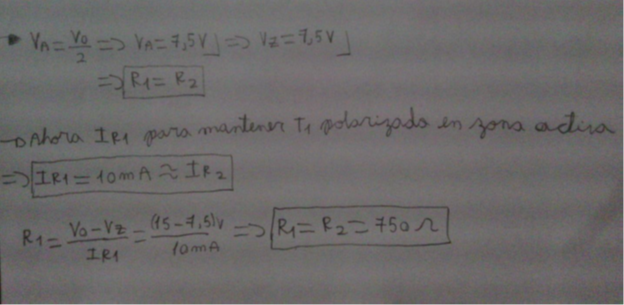 • VA = Vo/2 => VA = 7,5V => VZ = 7,5V
=> R1 = R2
→ Ahora IR1 para mantener T1 polarizado en zona activa
=> IR1 = 10mA ≈ IR2
R1 = (Vo - VZ)/IR1 = (15 - 7,5)V/10mA => R1 = R2 = 750 Ω